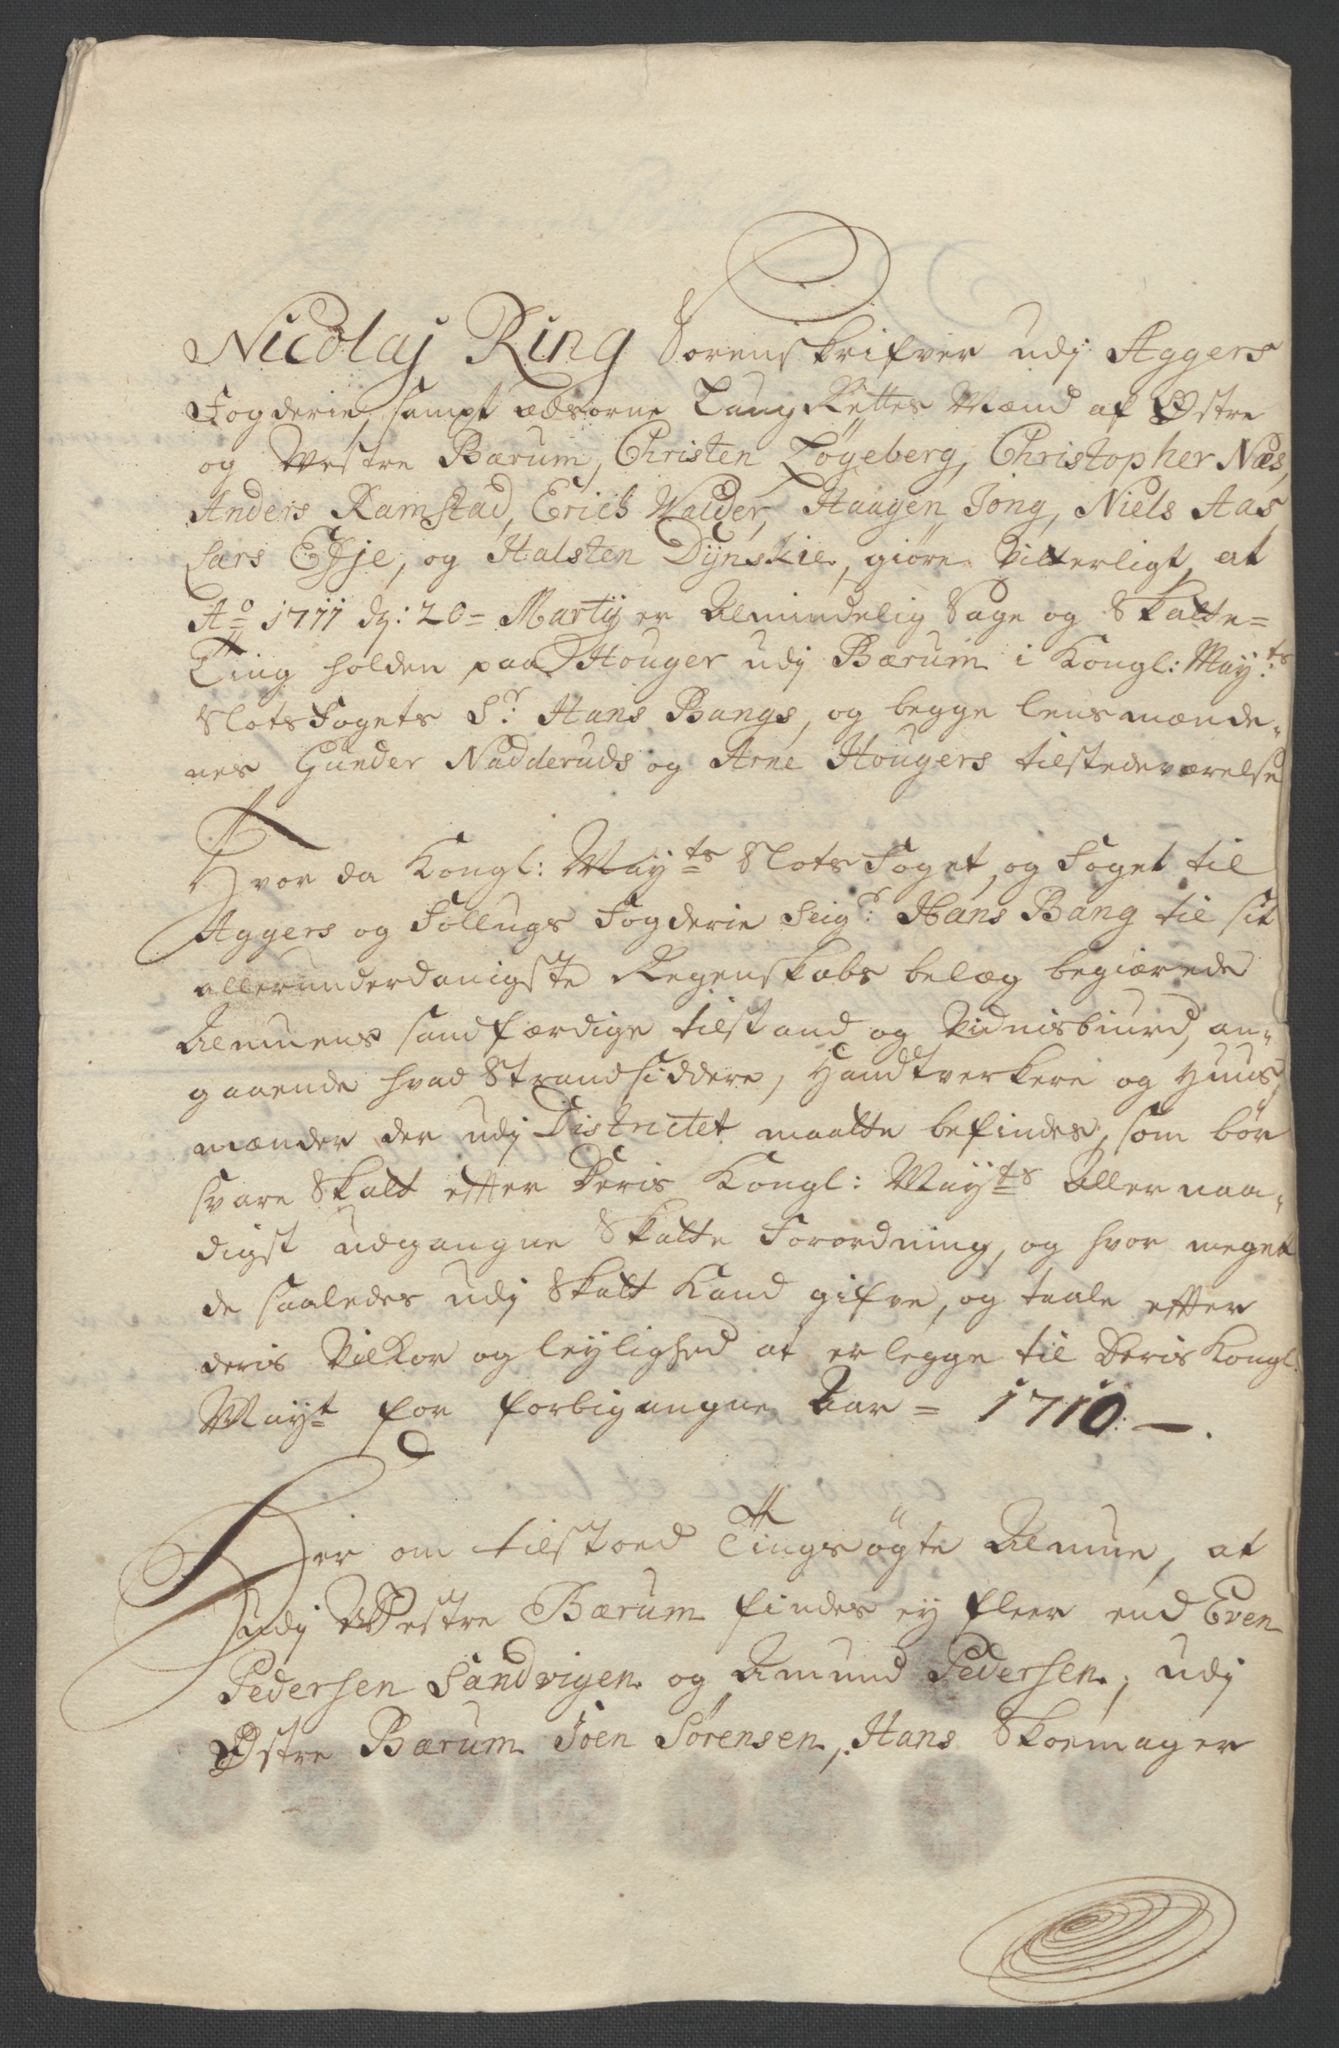 Nicolaj Ring Sorenskrifver udj Aggers
Fogderie, sampt edsorne Laug Rettes Mænd af Østre
og Westre Bærum, Christen Løgeberg, Christopher Næs,
Anders Ramstad, Erich Walder, Haagen Jong, Niels Aas
Lars Effje, og Halsten Dÿnskie, giøre Vitterligt, at
Aº 1711 dj: 20= Martij er Almindelig Sage og Skatte=
Ting holden paa Houger udj Bærum i Kongl: Mayts:
Slots Fogets Sr: Hans Bangs, og begge lensmænde-
nes Gunder Nadderuds og Arne Hougers tilstedeværelse
Hvor da Kongl: Mayts Slots Foget, og Foget til
Aggers og Follougs Fogderie Seigr: Hans Bang til sit
allerunderdanigste Regenskabs belæg begiærede
Almuens sandfærdige tilstand og Vidnisbiurd, an-
gaaende hvad Strandsiddere, Handtverkere og Huus-
mænder der udj Districtet maatte befindes, som bør
svare Skatt efter Deris Kongl: Mayts Allernaa-
digst udgangne Skatte Forordning, og hvor meget
de saaledes udj Skatt Kand gifve, og taale efter
deris Vilkor og leylighed at erlegge til Deris Kongl:
Mayt for forbigangne Aar = 1710 —.
Her om tilstoed Tingsøgte Almue, at
udj Westre Bærum findes ey fleer end Even
Pedersen Sandvigen og Amund Pedersen, udj
Østre Bærum Joen Sørensen, Hans Skoemager